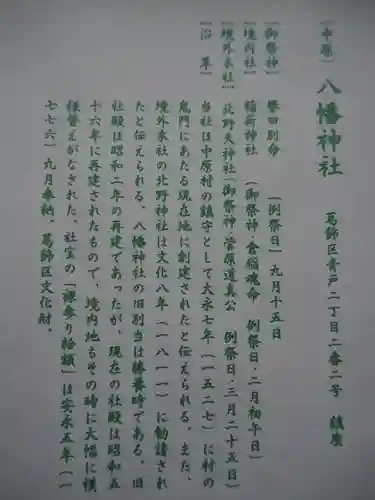 (中原) 八幡神社　葛飾区青戸二丁目二番二号　鎮座
(御祭神) 誉田別命　(例祭日) 九月十五日
(境内社) 稲荷神社　(御祭神・倉稲魂命　例祭日・二月初午日)
(境外末社) 北野天神社 (御祭神・菅原道真公　例祭日・三月二十五日)
(沿革) 当社は中原村の鎮守として大永七年(一五二七)に村の
鬼門にあたる現在地に創建されたと伝えられる。また、
境外末社の北野神社は文化八年(一八一一)に勧請され
たと伝えられる。八幡神社の旧別当は勝養寺である。旧
社殿は昭和二年の再建であったが、現在の社殿は昭和五
十六年に再建されたもので、境内地もその時に大幅に模
様替えがなされた。社宝の「裸参り絵額」は安永五年(一
七七六)九月奉納。葛飾区文化財。